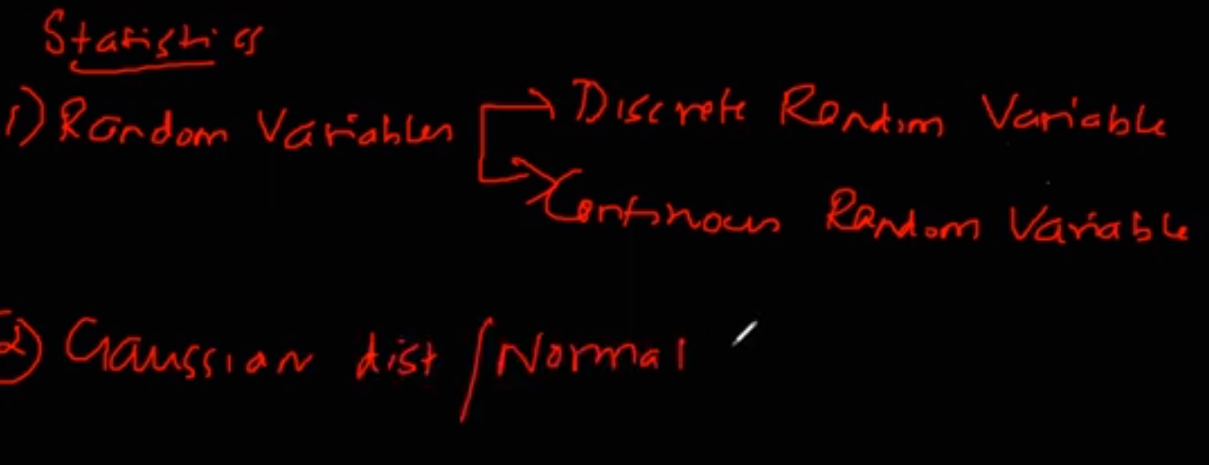 Statistics
1) Random Variables → Discrete Random Variable
→ Continous Random Variable
2) Gaussian dist / Normal